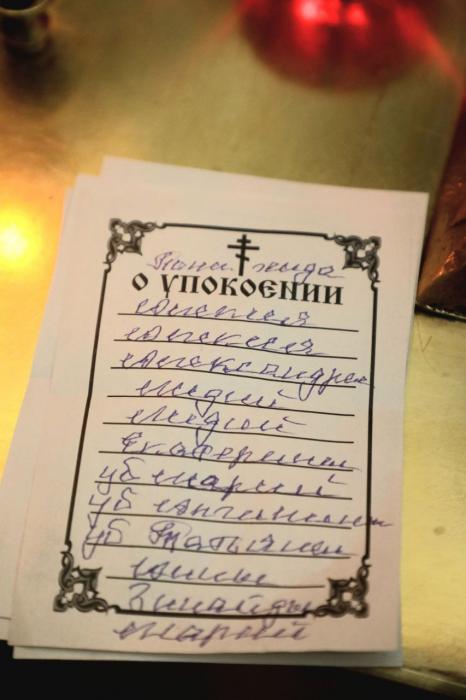 Пани хида
О УПОКОЄНИИ
Алексея
Александра
Лидии
Лидии
Екатерины
уб Марии
уб Антонины
уб Татьяны
Анны
Зинаиды
Марии